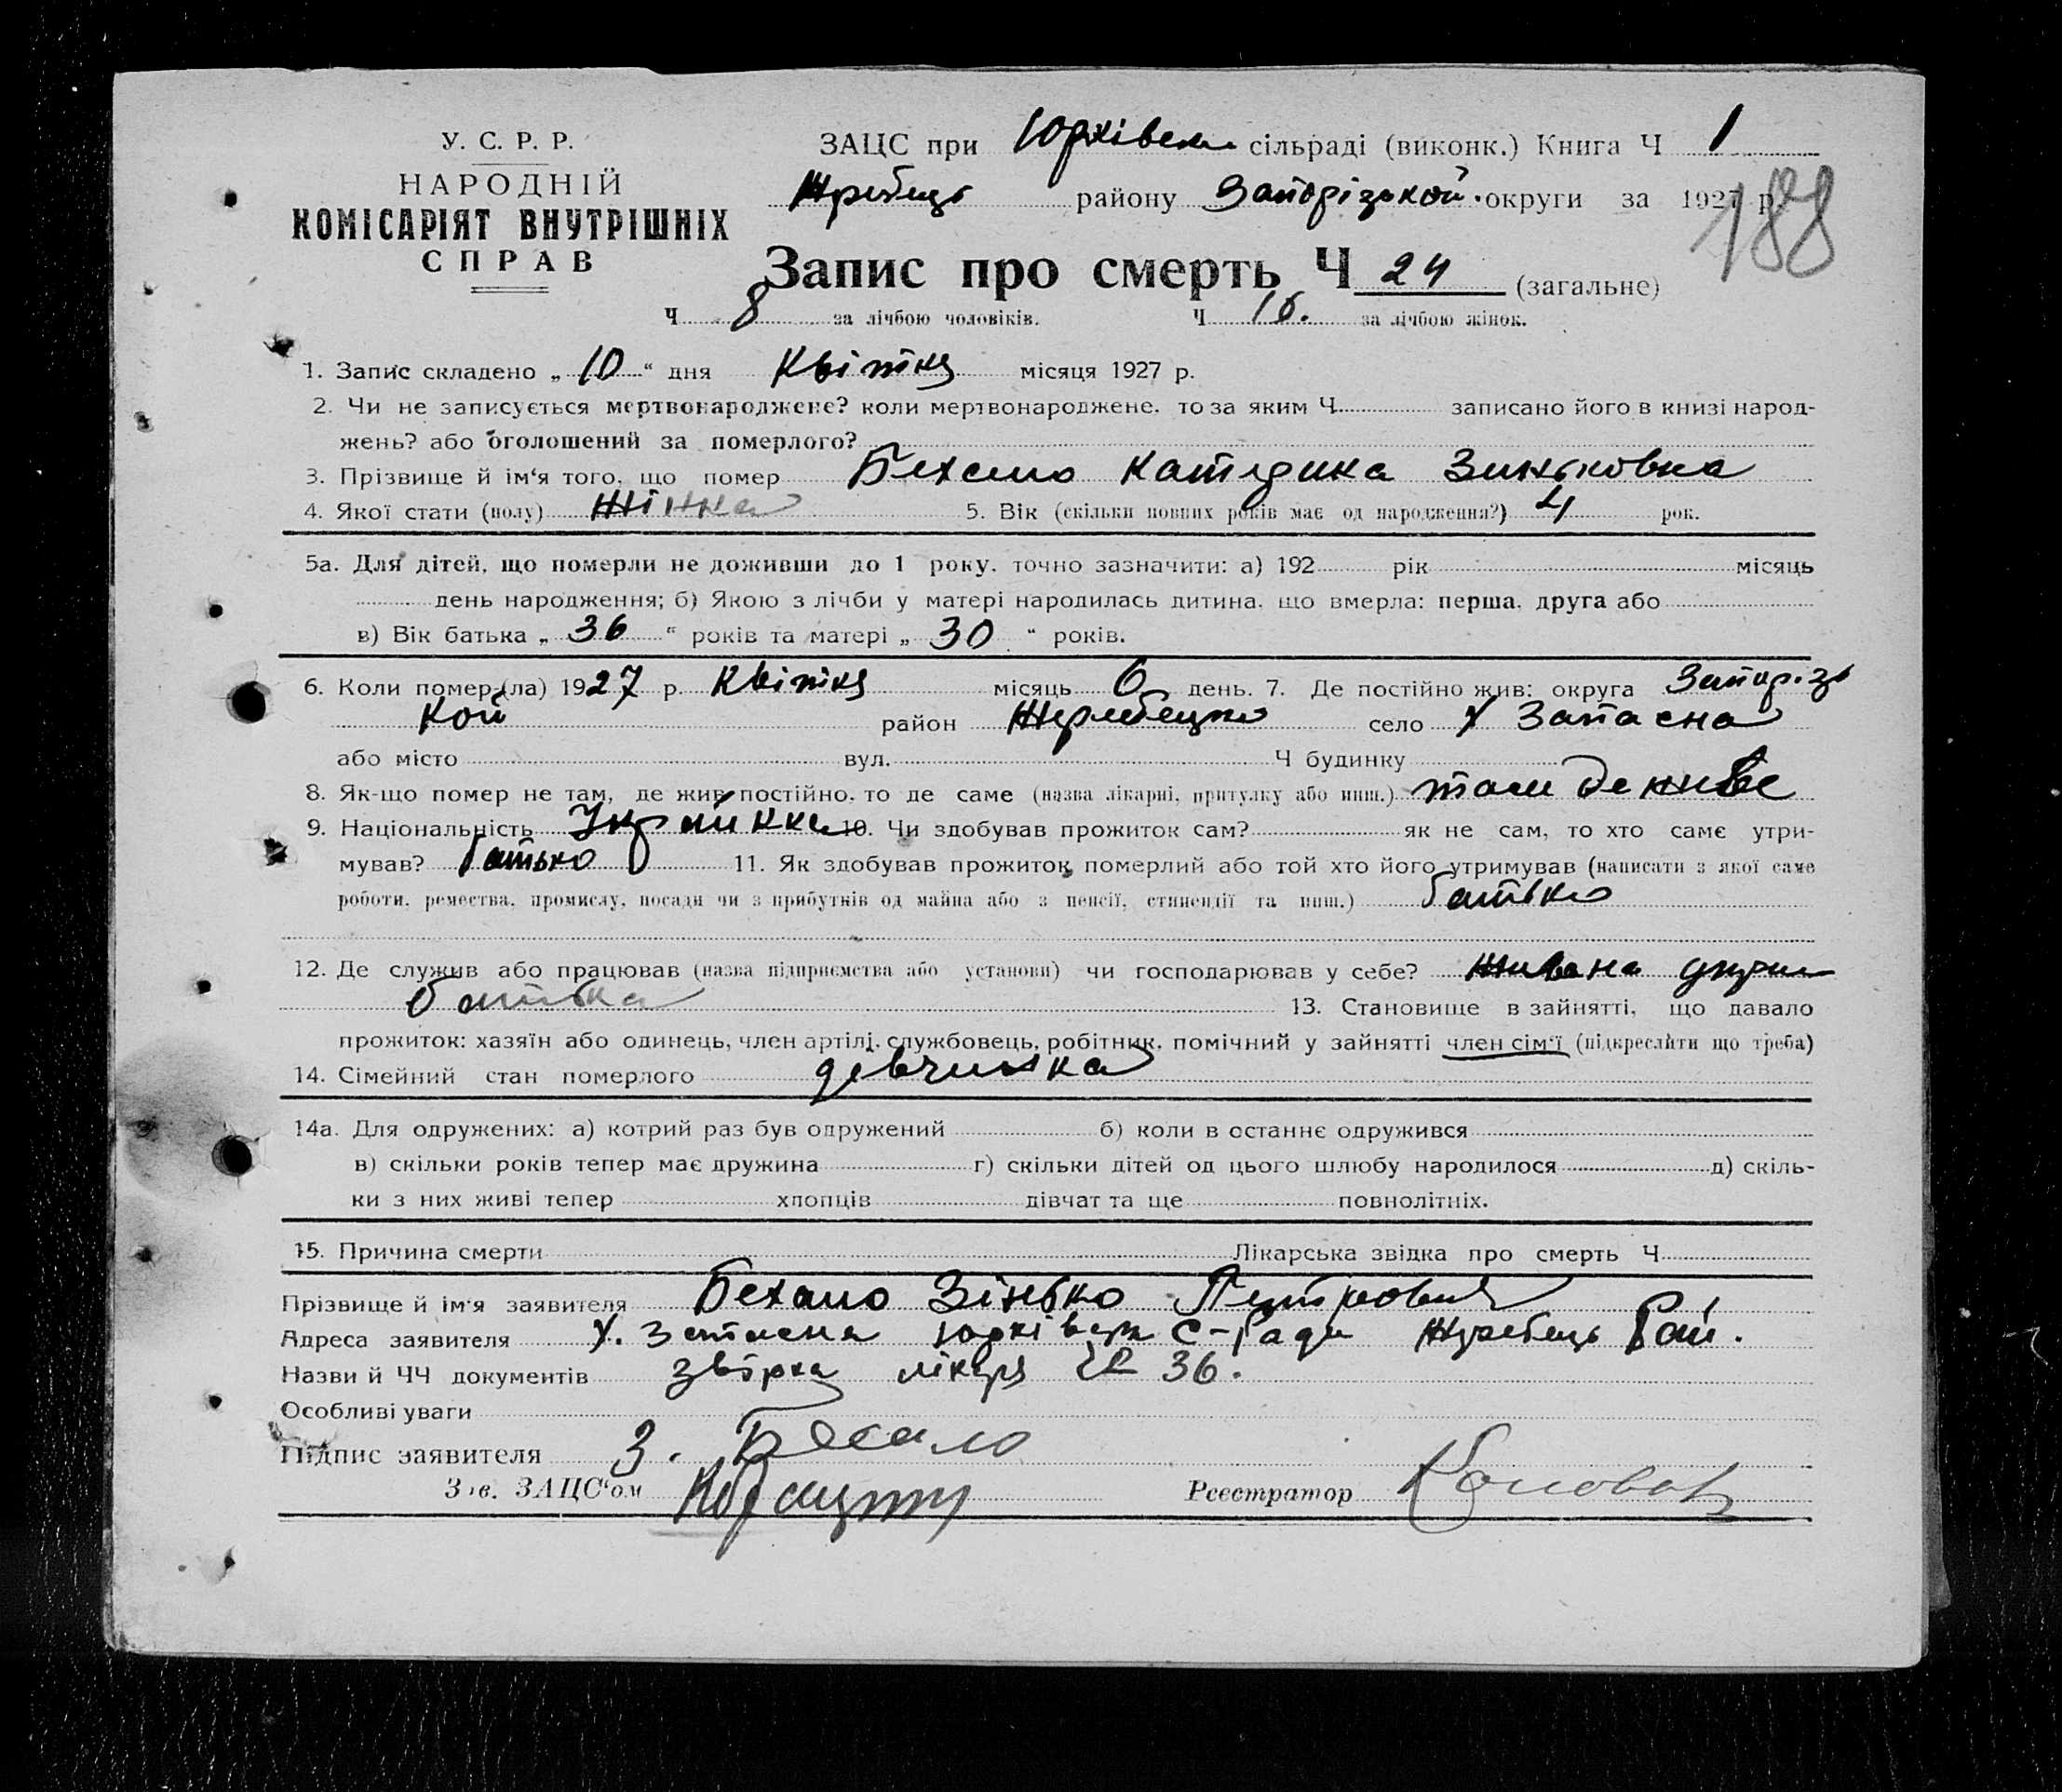 У. С. Р. Р.
НАРОДНІЙ
КОМІСАРІЯТ ВНУТРІШНІХ
СПРАВ
ЗАЦС при Юрківськ сільраді (виконк.) Книга Ч 1
Жребець району Запорізької округи за 1927 р.
188
Запис про смерть Ч 24 (загальне)
Ч 8 за лічбою чоловіків. Ч 16. за лічбою жінок.
1. Запис складено „ 10 “ дня Квітня місяця 1927 р.
2. Чи не записується мертвонароджене? коли мертвонароджене. то за яким Ч записано його в книзі народ-
жень? або оголошений за померлого?
3. Прізвище й ім‘я того, що помер Бехало Катерина Зиньковна
4. Якої стати (полу) жінка 5. Вік (скільки повних років має од народження?) 4 рок.
5а. Для дітей, що померли не доживши до 1 року. точно зазначити: а) 192 рік місяць
день народження; б) Якою з лічби у матері народилась дитина, що вмерла: перша, друга або
в) Вік батька „ 36 “ років та матері „ 30 “ років.
6. Коли помер (ла) 1927 р. Квітня місяць 6 день. 7. Де постійно жив: округа Запорізь
кой район Жеребецько село х Запасна
або місто вул. Ч будинку
8. Як-що помер не там, де жив постійно, то де саме (назва лікарні, притулку або инш.) там де живе
9. Національність Українка 10. Чи здобував прожиток сам? як не сам, то хто саме утри-
мував? батько 11. Як здобував прожиток померлий або той хто його утримував (написати з якої саме
роботи, ремества, промислу, посади чи з прибутків од майна або з пенсії, стипендії та инш.) батько
12. Де служив або працював (назва підприємства або установи) чи господарював у себе? жива на
батька 13. Становище в зайнятті, що давало
прожиток: хазяїн або одинець, член артілі, службовець, робітник, помічний у зайнятті член сім‘ї (підкреслити що треба)
14. Сімейний стан померлого дівчинка
14а. Для одружених: а) котрий раз був одружений б) коли в останнє одружився
в) скільки років тепер має дружина г) скільки дітей од цього шлюбу народилося д) скіль-
ки з них живі тепер хлопців дівчат та ще повнолітніх.
15. Причина смерти Лікарська звідка про смерть Ч
Прізвище й ім‘я заявителя Бехало Зінько Петрович
Адреса заявителя х. Запасна Юрківськ С-Ради Жребець Рай.
Назви й ЧЧ документів лікаря № 36.
Особливі уваги
Підпис заявителя З. Бехало
Зав. ЗАЦС‘ом
Реєстратор